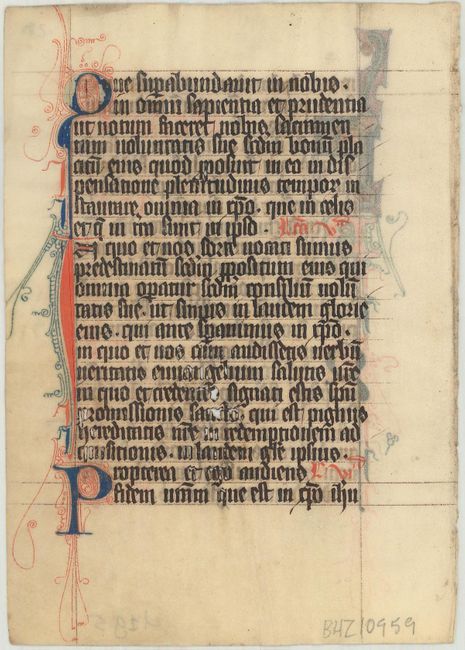 Que suꝑabundauit in nobis .
in omni sapientia et prudentia
ut notum faceret nobis sacramen
tum uoluntatis sue scdm bonū pla
citū eius quod ꝓposuit in eo in dis
pensatione plenitudinis tempoꝝ in
staurare omnia in xp̄o . que in celis
et q̄ in tra sunt in ipso .
In quo et nos sorte uocati sumus
predestinati scdm ꝓpositum eius qui
omnia opatur scdm consiliū uolū
tatis sue . ut simus in laudem glorie
eius . qui ante sꝑauimus in xp̄o .
in quo et uos cum audissetis uerbū
ueritatis euuangelium salutis ur̄e
in quo et credentes signati estis sp̄u
promissionis sancto qui est pignus
hereditatis nr̄e in redemptionem ad
quisitionis . in laudem gl̄e ipsius .
Propterea et ego audiens
fidem ur̄am que est in xp̄o ih̄u
BHZ10959